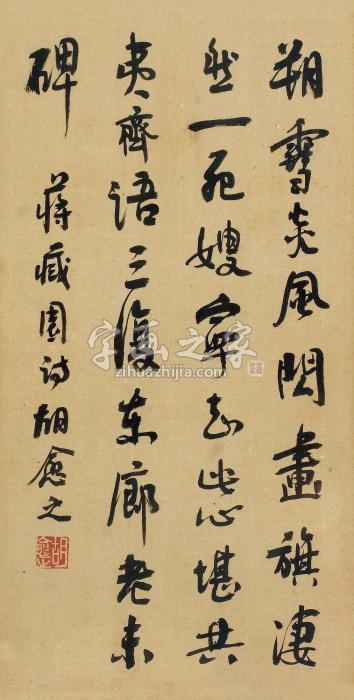 朔雪炎風閃畫旗淒
然一死嫂寧知此心堪共
夷齊語三復東廊老
碑
蔣藏園詩胡愈之
胡愈之
字画之家
zihuazhijia.com